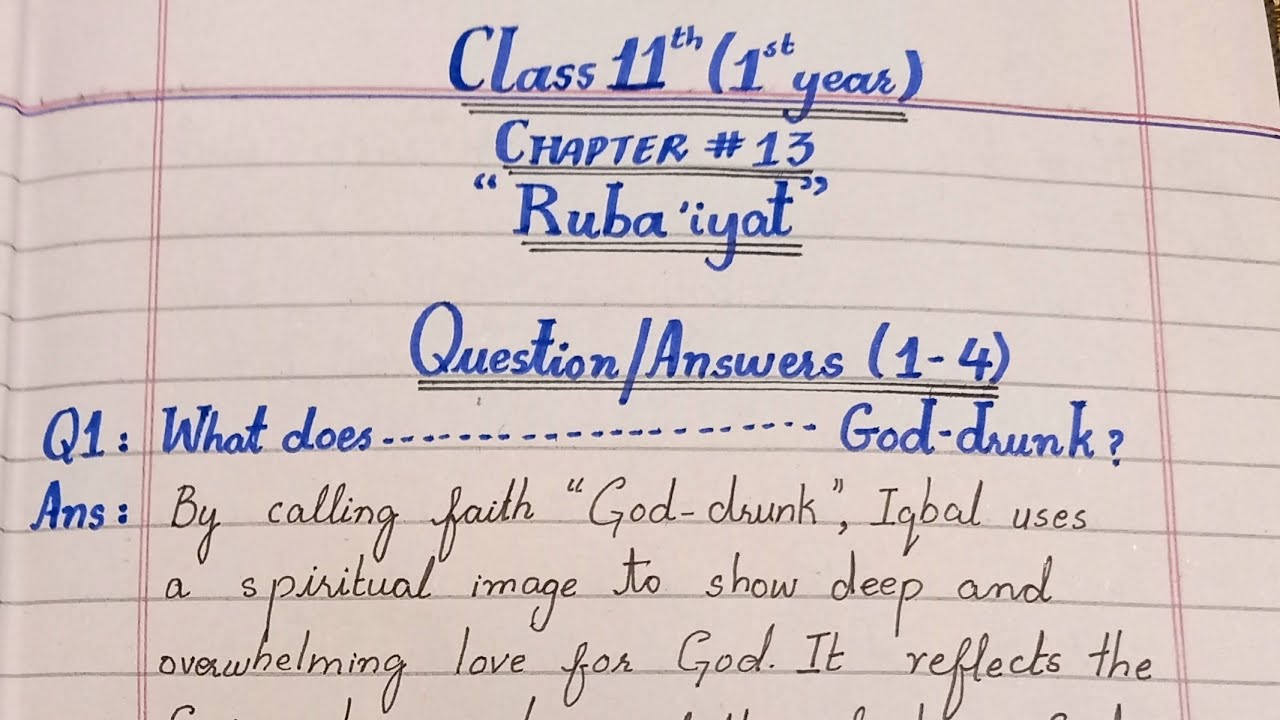 Class 11th (1st year)
CHAPTER # 13
"Ruba'iyat"
Question/Answers (1-4)
Q1: What does--------------------God-drunk?
Ans: By calling faith "God-drunk", Iqbal uses
a spiritual image to show deep and
overwhelming love for God. It reflects the